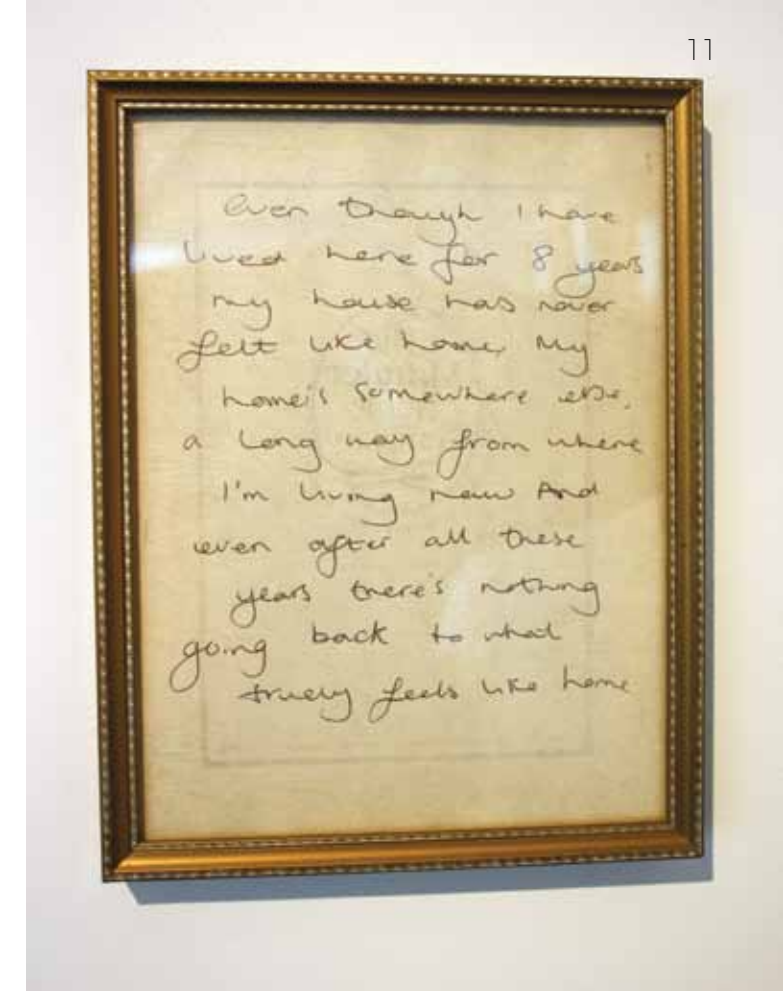 11
Even though I have
lived here for 8 years
my house has never
felt like home. My
home's somewhere else,
a long way from where
I'm living now And
even after all these
years there's nothing
going back to what
truely feels like home